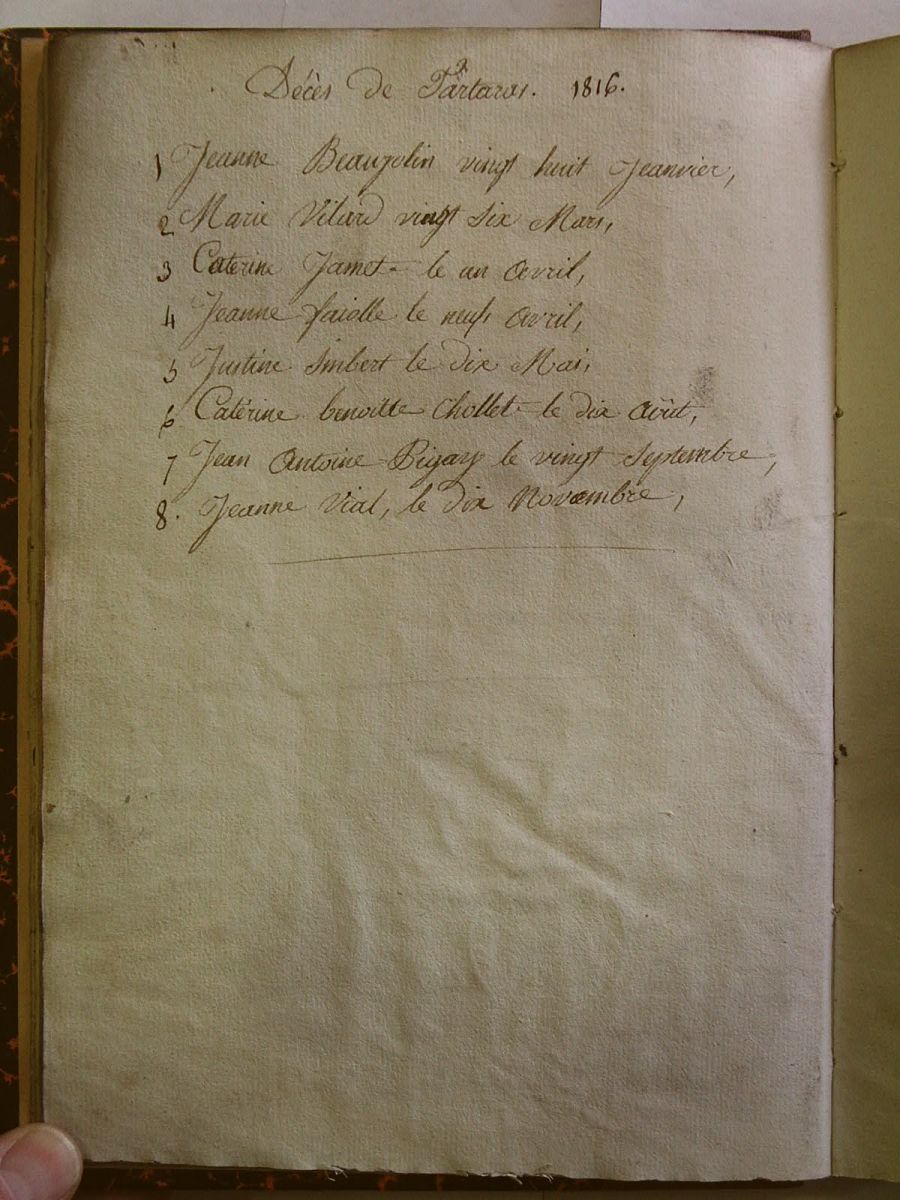 Décès de Tartaras. 1816.
1 Jeanne Beaujolin vingt huit Jeanvier,
2 Marie Vilard vingt six Mars,
3 Caterine Jamet le un avril,
4 Jeanne faiolle le neuf avril,
5 Justine Imbert le dix Mai,
6 Catérine benoitte Chollet le dix Août,
7 Jean Antoine Bigay le vingt Septembre,
8. Jeanne Vial, le dix Novembre,